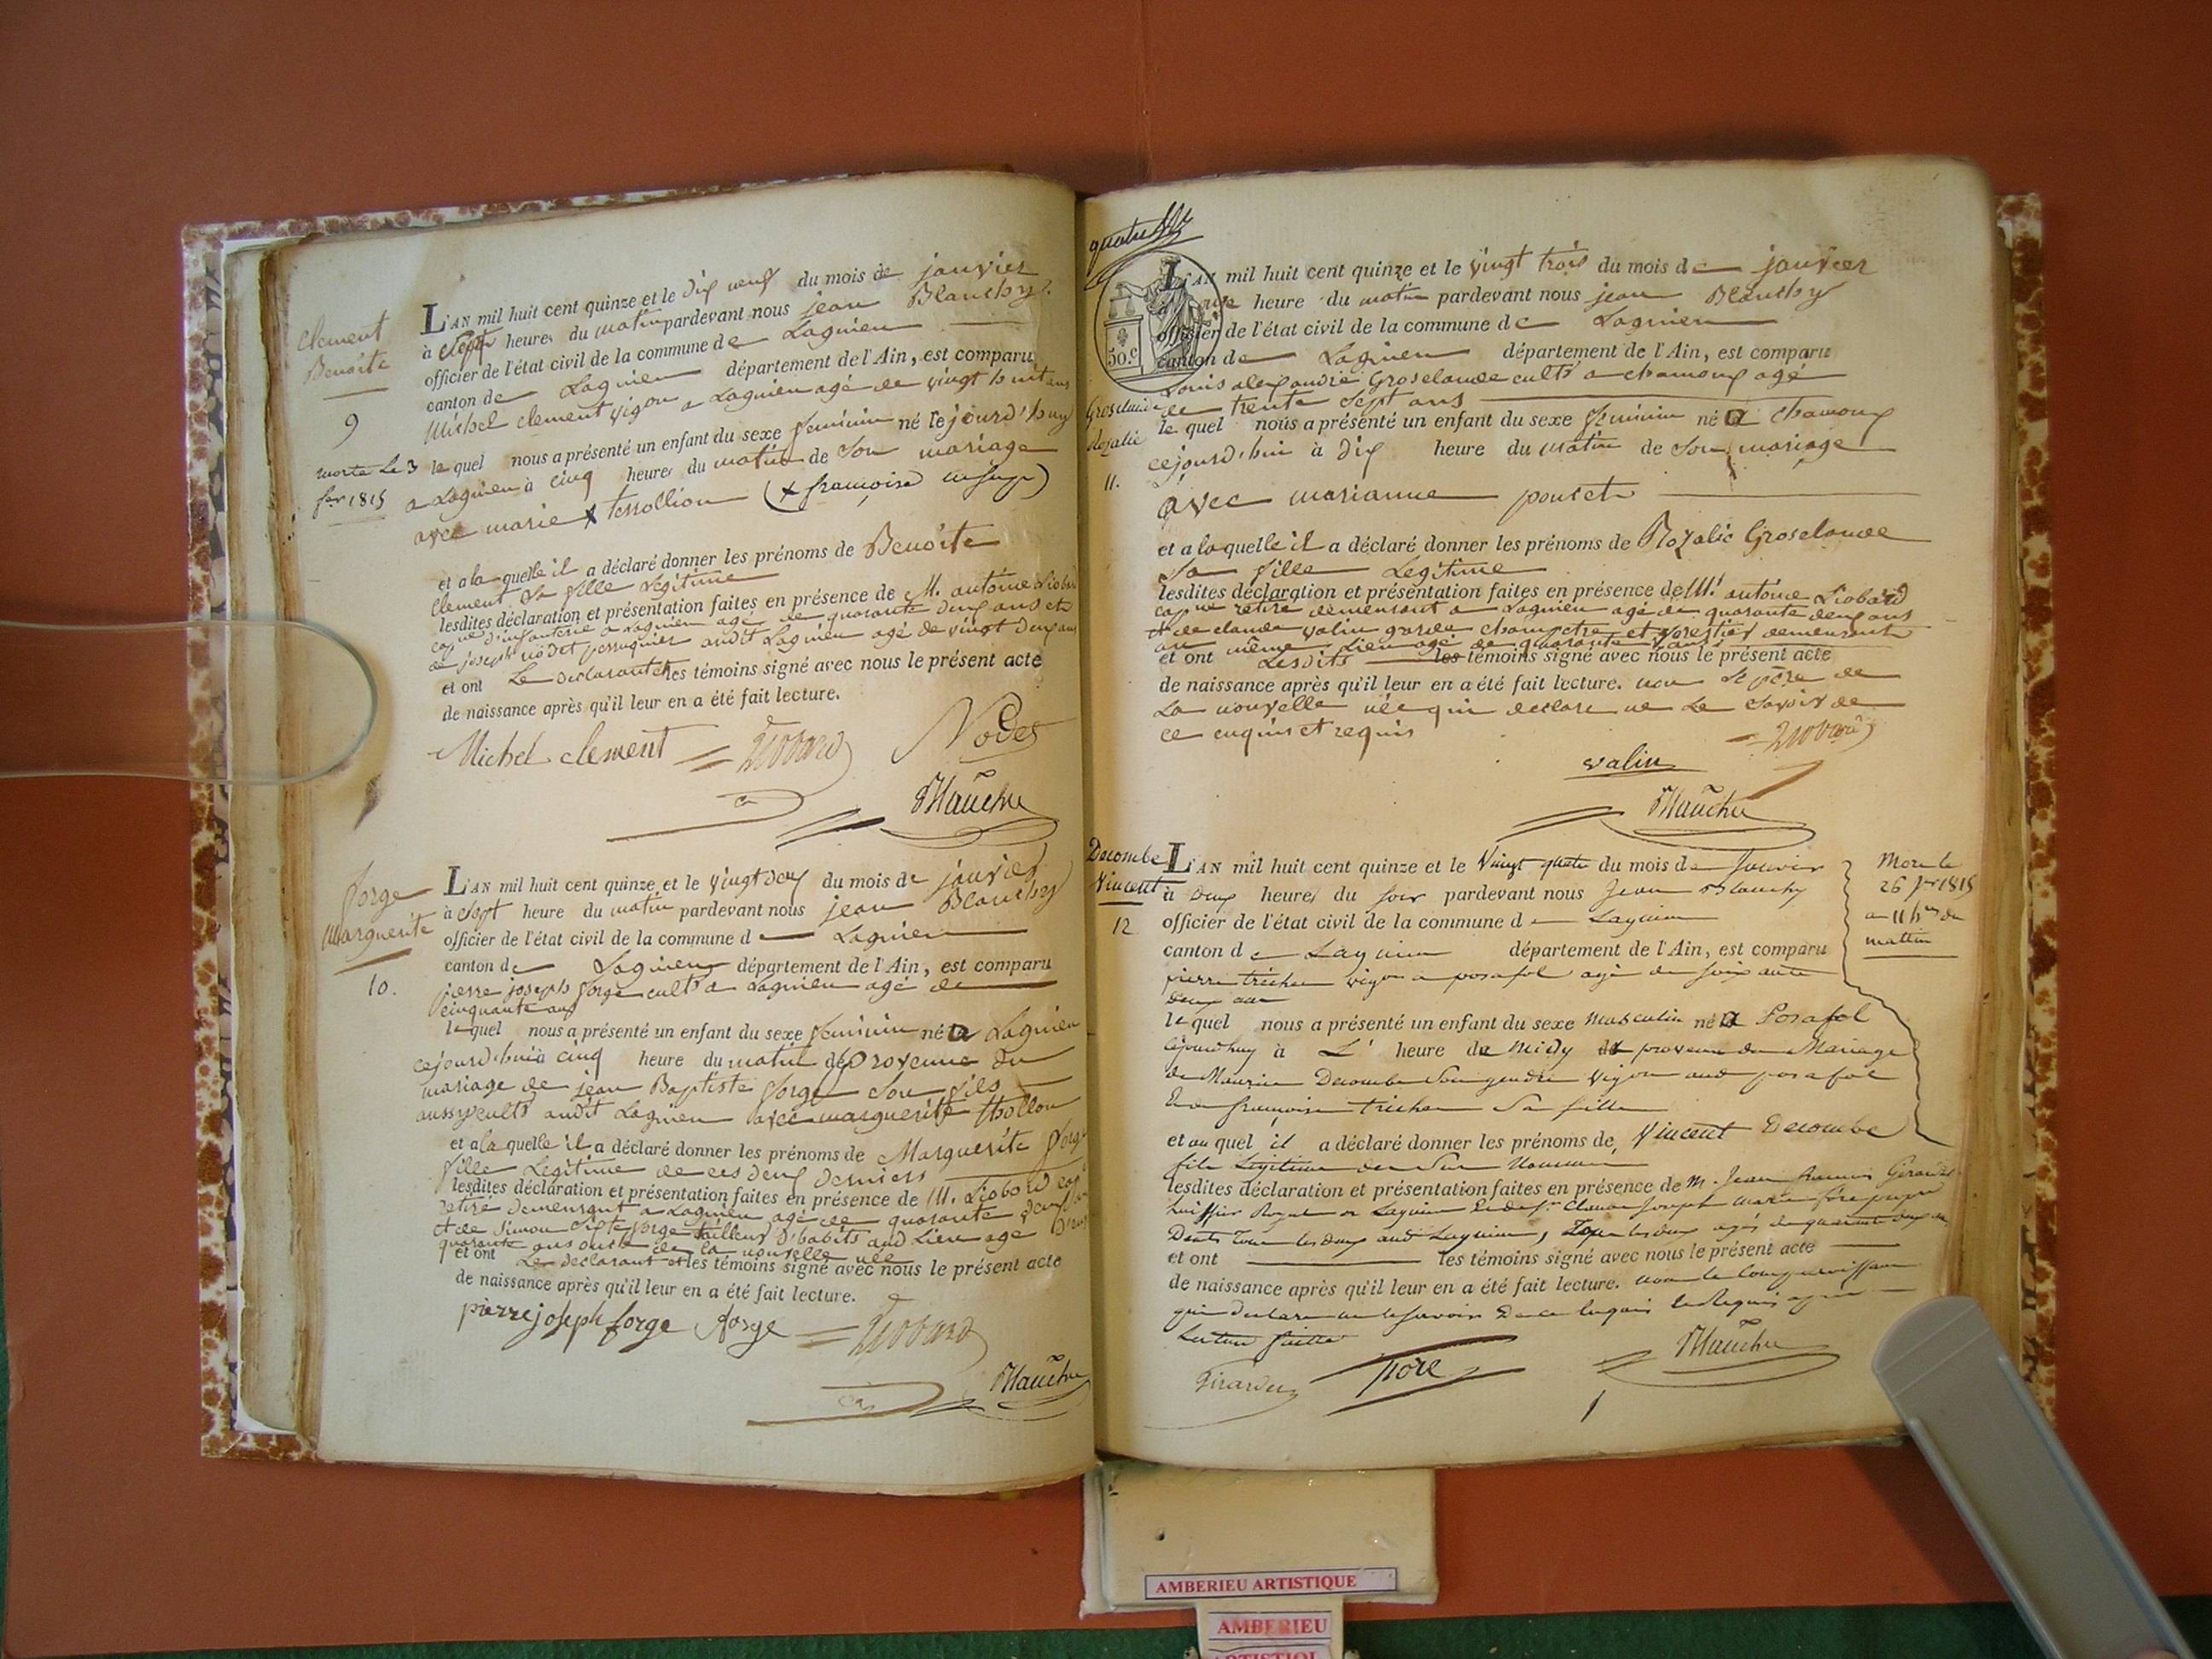 Clement
Benoite
9
morte le 3
fer 1815
L'AN mil huit cent quinze et le dix neuf du mois de janvier
à sept heures du matin pardevant nous jean Blanchy
officier de l'état civil de la commune de Lagnieu
canton de Lagnieu département de l'Ain, est comparu
Michel clement vigon a Lagnieu agé de vingt huit ans
le quel nous a présenté un enfant du sexe feminin né cejourd'huy
a Lagnieu à cinq heures du matin de son mariage
avec marie x (x françoise
et a la quelle il a déclaré donner les prénoms de Benoite
Clement sa fille Legitime
lesdites déclaration et présentation faites en présence de M. antoine Liobard
cap ne d'infanterie a Lagnieu agé de quarante deux ans et
de joseph nodet perruquier audit Lagnieu agé de vingt deux ans
et ont Le declarant et les témoins signé avec nous le présent acte
de naissance après qu'il leur en a été fait lecture.
Michel clement Liobard Nodet
Blanchy
forge
Marguerite
10.
L'AN mil huit cent quinze et le vingt deux du mois de janvier
à sept heure du matin pardevant nous jean Blanchy
officier de l'état civil de la commune de Lagnieu
canton de Lagnieu département de l'Ain, est comparu
pierre joseph forge cult r a Lagnieu agé de
cinquante ans
le quel nous a présenté un enfant du sexe feminin né a Lagnieu
cejourd'hui à cinq heure du matin provenue du
mariage de jean Baptiste forge son fils
aussy cult r audit Lagnieu avec marguerite thollon
et a la quelle il a déclaré donner les prénoms de Marguerite forge
fille Legitime de ces deux derniers
lesdites déclaration et présentation faites en présence de M. Liobard cap
retiré demeurant a Lagnieu agé de quarante deux ans
et de Simon forge tailleur d'habits aud Lieu agé de
quarante ans oncle de la nouvelle née
et ont Le declarant et les témoins signé avec nous le présent acte
de naissance après qu'il leur en a été fait lecture.
pierre joseph forge forge Liobard
Blanchy
quatre
50.c
Groselaude
Rozalie
11.
L'AN mil huit cent quinze et le vingt trois du mois de janvier
à onze heure du matin pardevant nous jean Blanchy
officier de l'état civil de la commune de Lagnieu
canton de Lagnieu département de l'Ain, est comparu
Louis alexandre Groselaude cult r a chamoux agé
de trente sept ans
le quel nous a présenté un enfant du sexe feminin né a chamoux
cejourd'hui à dix heure du matin de son mariage
avec marianne poncet
et a laquelle il a déclaré donner les prénoms de Rozalie Groselaude
sa fille Legitime
lesdites déclaration et présentation faites en présence de M r antoine Liobard
cap ne retiré demeurant a Lagnieu agé de quarante deux ans
et de claude valin garde champetre et forestier demeurant
au même Lieu agé de quarante ans
et ont Lesdits les témoins signé avec nous le présent acte
de naissance après qu'il leur en a été fait lecture. non Le père de
La nouvelle née qui declare ne Le savoir de
ce enquis et requis
Liobard
valin
Blanchy
Decombe
Vincent
12
L'AN mil huit cent quinze et le vingt quatre du mois de janvier
à deux heures du soir pardevant nous Jean Blanchy
officier de l'état civil de la commune de Lagnieu
canton de Lagnieu département de l'Ain, est comparu
pierre trichon vigon a posafol agé de soixante
deux ans
le quel nous a présenté un enfant du sexe masculin né a Posafol
cejourdhuy à L' heure de midy provenu du Mariage
de Maurice Decombe son gendre vigon aud posafol
et de françoise trichon sa fille
et au quel il a déclaré donner les prénoms de Vincent Decombe
fils Legitime
lesdites déclaration et présentation faites en présence de M. Jean
huissier Royal a Lagnieu et de Sr Claude Joseph Marie
et ont les témoins signé avec nous le présent acte
de naissance après qu'il leur en a été fait lecture. non le comparoissant
qui declare ne le savoir De ce Enquis et Requis après
Lecture faitte
Blanchy
Mort le
26 jer 1815
a 11 hres du
mattin
AMBERIEU ARTISTIQUE
AMBERIEU
ARTISTIQUE